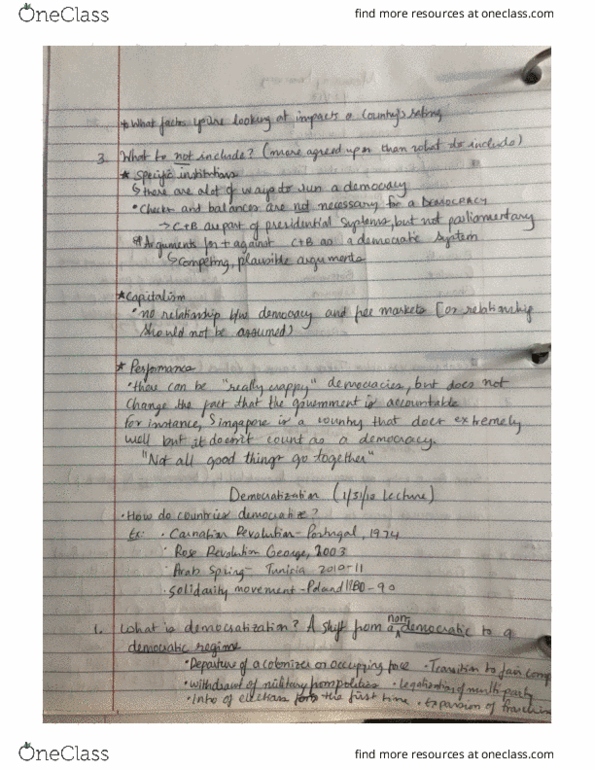 OneClass
find more resources at oneclass.com
* What factors you're looking at impacts a country's rating
3. What to not include? (more agreed upon than what do include)
* Specific institutions
↳ there are alot of ways to run a democracy
• Checks and balances are not necessary for a democracy
→ C+B are part of presidential systems, but not parliamentary
* Arguments for + against C+B as a democratic system
↳ Competing, plausible arguments
* Capitalism
• no relationship b/w democracy and free markets [or relationship
should not be assumed)
* Performance
• there can be "really crappy" democracies, but does not
change the fact that the government is accountable
for instance, Singapore is a country that does extremely
well but it doesn't count as a democracy.
"Not all good things go together"
Democratization (1/31/ Lecture)
• How do countries democratize?
Ex: • Carnation Revolution - Portugal, 1974
• Rose Revolution George, 2003
• Arab Spring - Tunisia 2010-11
• Solidarity movement - Poland 90
1. What is democratization? A shift from a non democratic to a
democratic regime
• Departure of a colonizer or occupying force • Transition to fair comp
• withdrawl of military from politics • legalization of multiparty
• Intro of elections for the first time • Expansion of franchise
OneClass
find more resources at oneclass.com